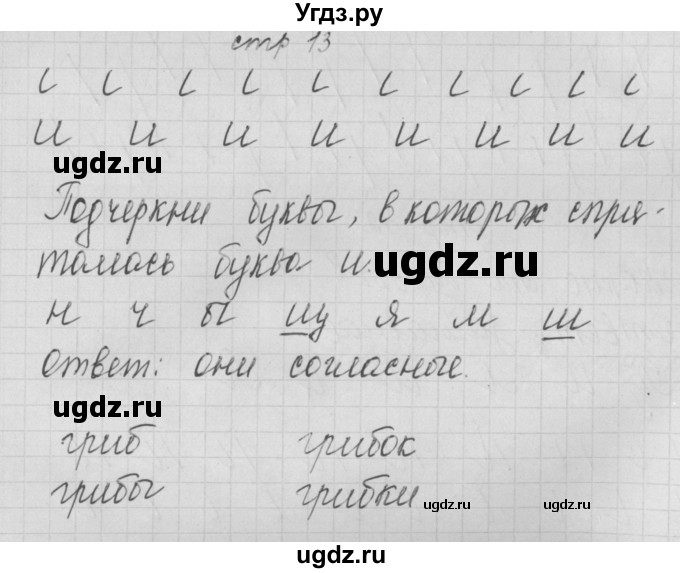 Угдз.ру
стр 13
и и и и и и и и и
ugdz.ru
Подчеркни буквы, в которых спря-
талась буква и.
ugdz.ru
н ч ы щ я м ш
ответ: они согласные.
ugdz.ru
гриб грибок
грибы грибки
ugdz.ru ugdz.ru
ugdz.ru